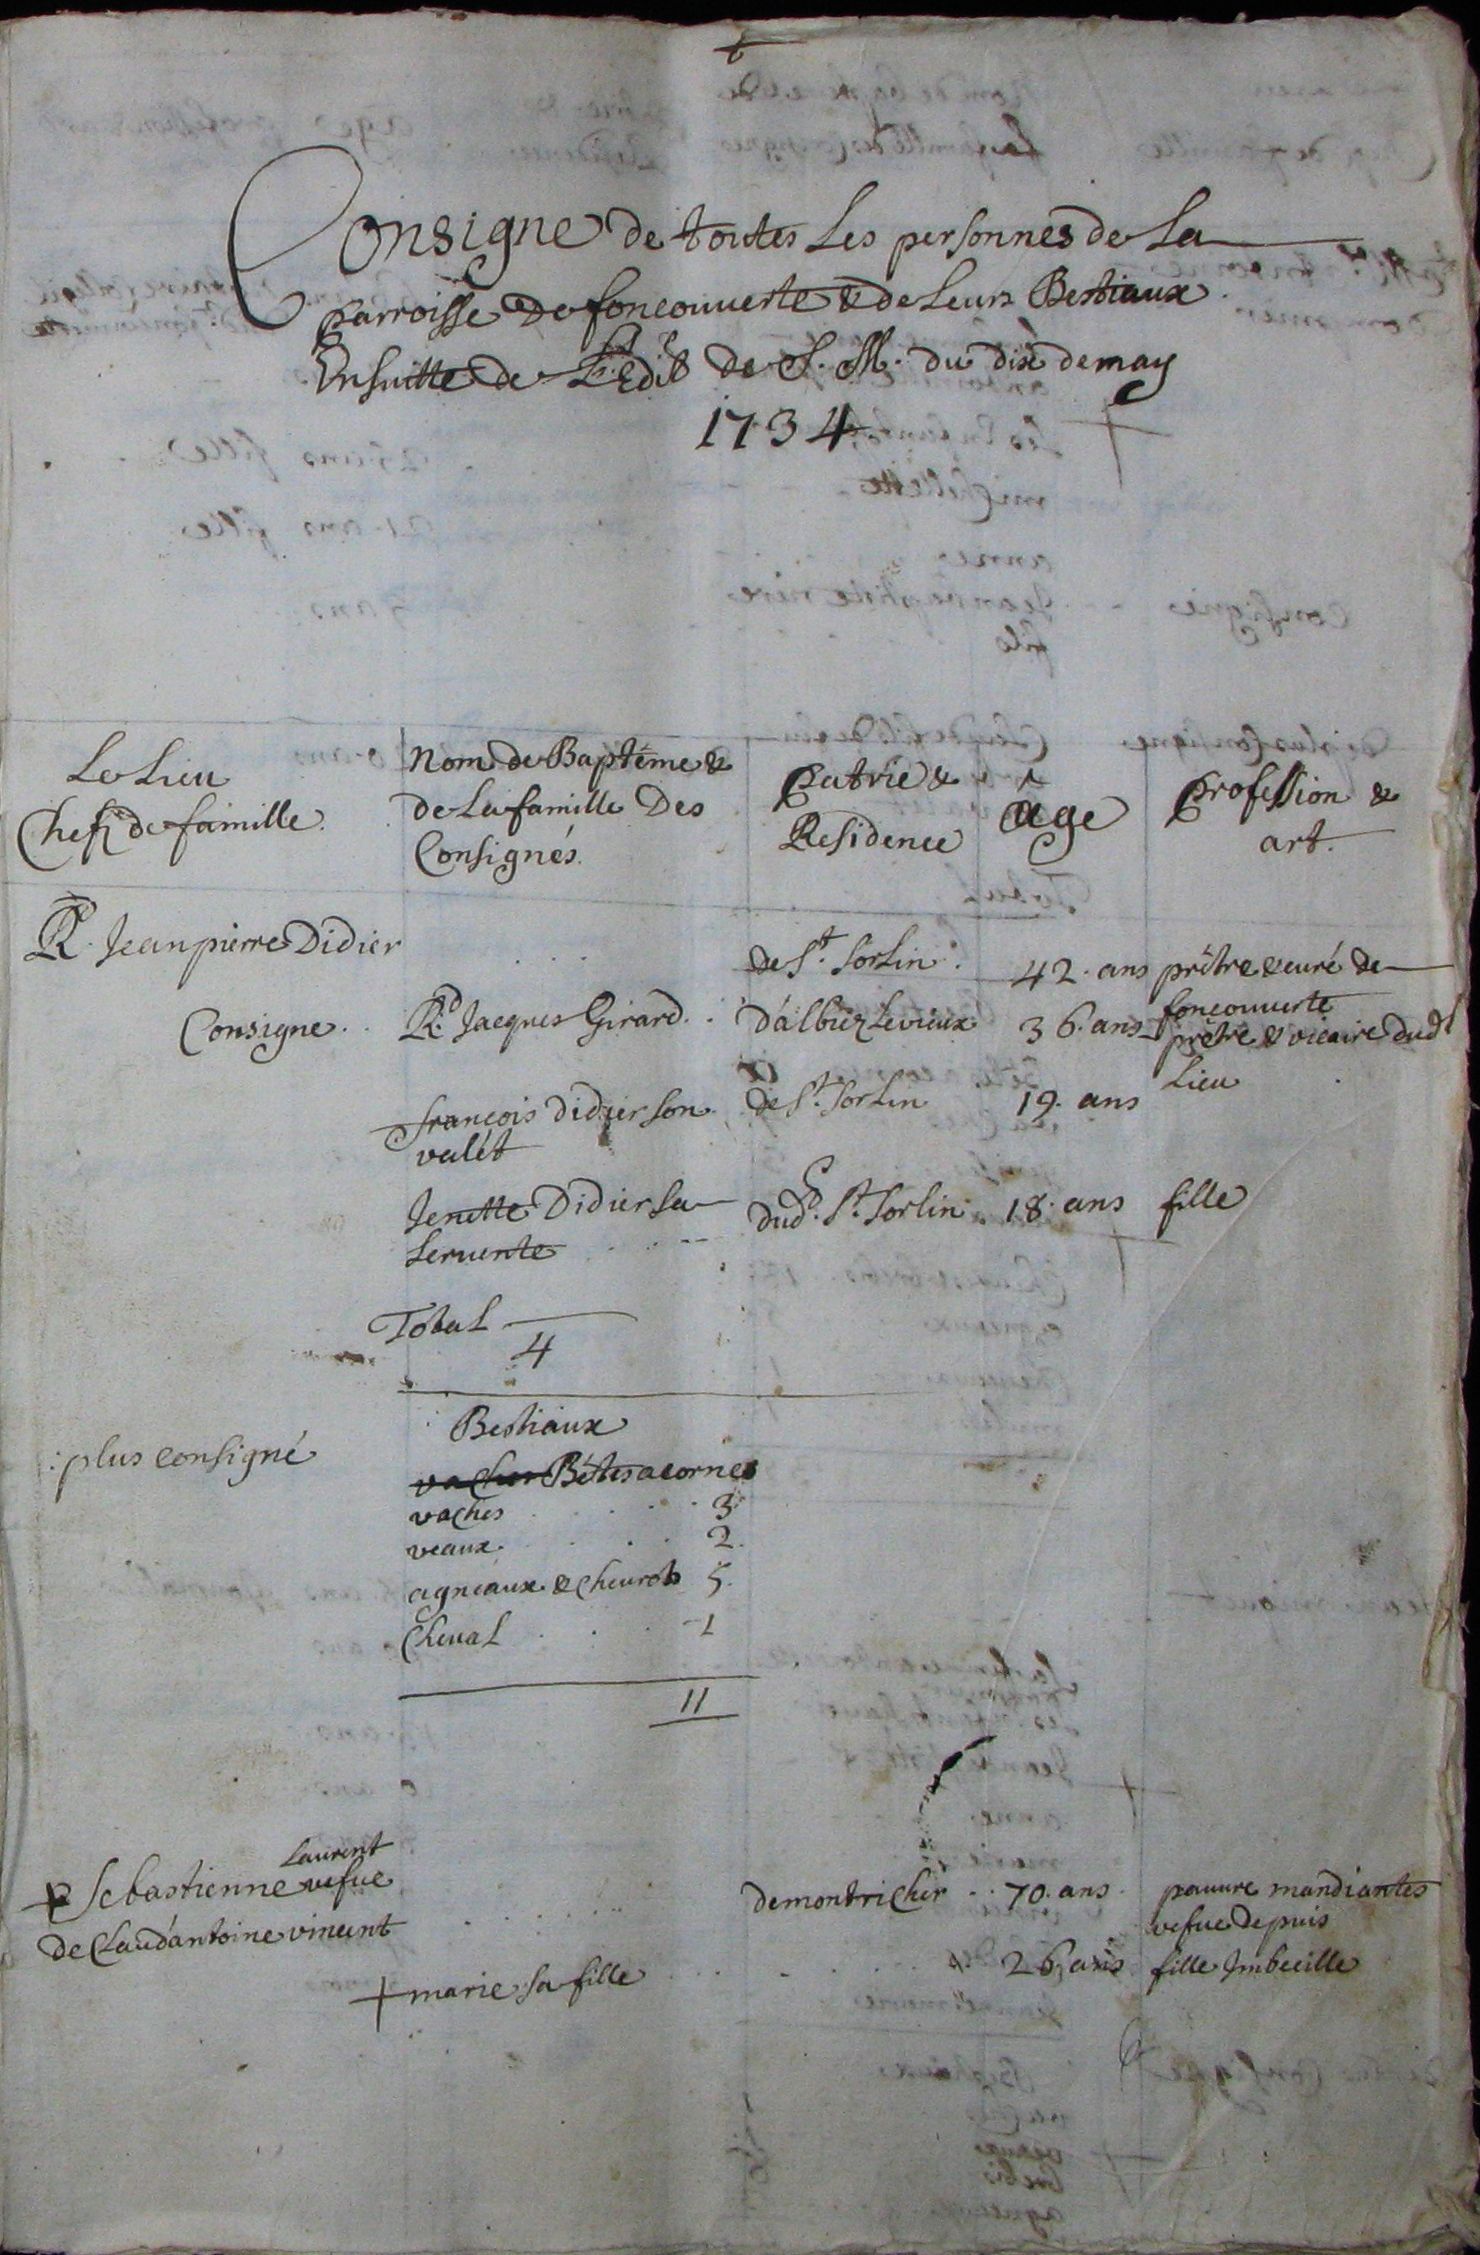 Consigne de toutes Les personnes de La
parroisse de foncouverte & de Leurs Bestiaux
Ensuitte de L'Edit de S. M. du dix de may
1734
Le Lieu
Chefz de famille.
Nom de Baptéme &
de La famille Des
Consignés.
patrie &
Residence
âge
profession &
art.
Rd. Jean pierre Didier
de St. Sorlin. 42. ans prêtre & curé de
foncouverte
Consigne. Rd. Jacques Girard. D'albiez Levieux 36. ans prêtre & vicaire dudt
Lieu
françois Didier son de St. Sorlin 19. ans
valét
Jenette Didier sa dud. St. Sorlin. 18. ans fille
servente
Total
4
Bestiaux
: plus consigné
vaches Bétes a cornes
vaches 3
veaux. 2.
agneaux & chevrots 5.
Cheval 1
11
Laurent
Sebastienne vefve demontricher 70. ans. pauvre mandiantes
de Claud'antoine vincent vefve depuis
+ marie sa fille 26. ans fille Imbecille